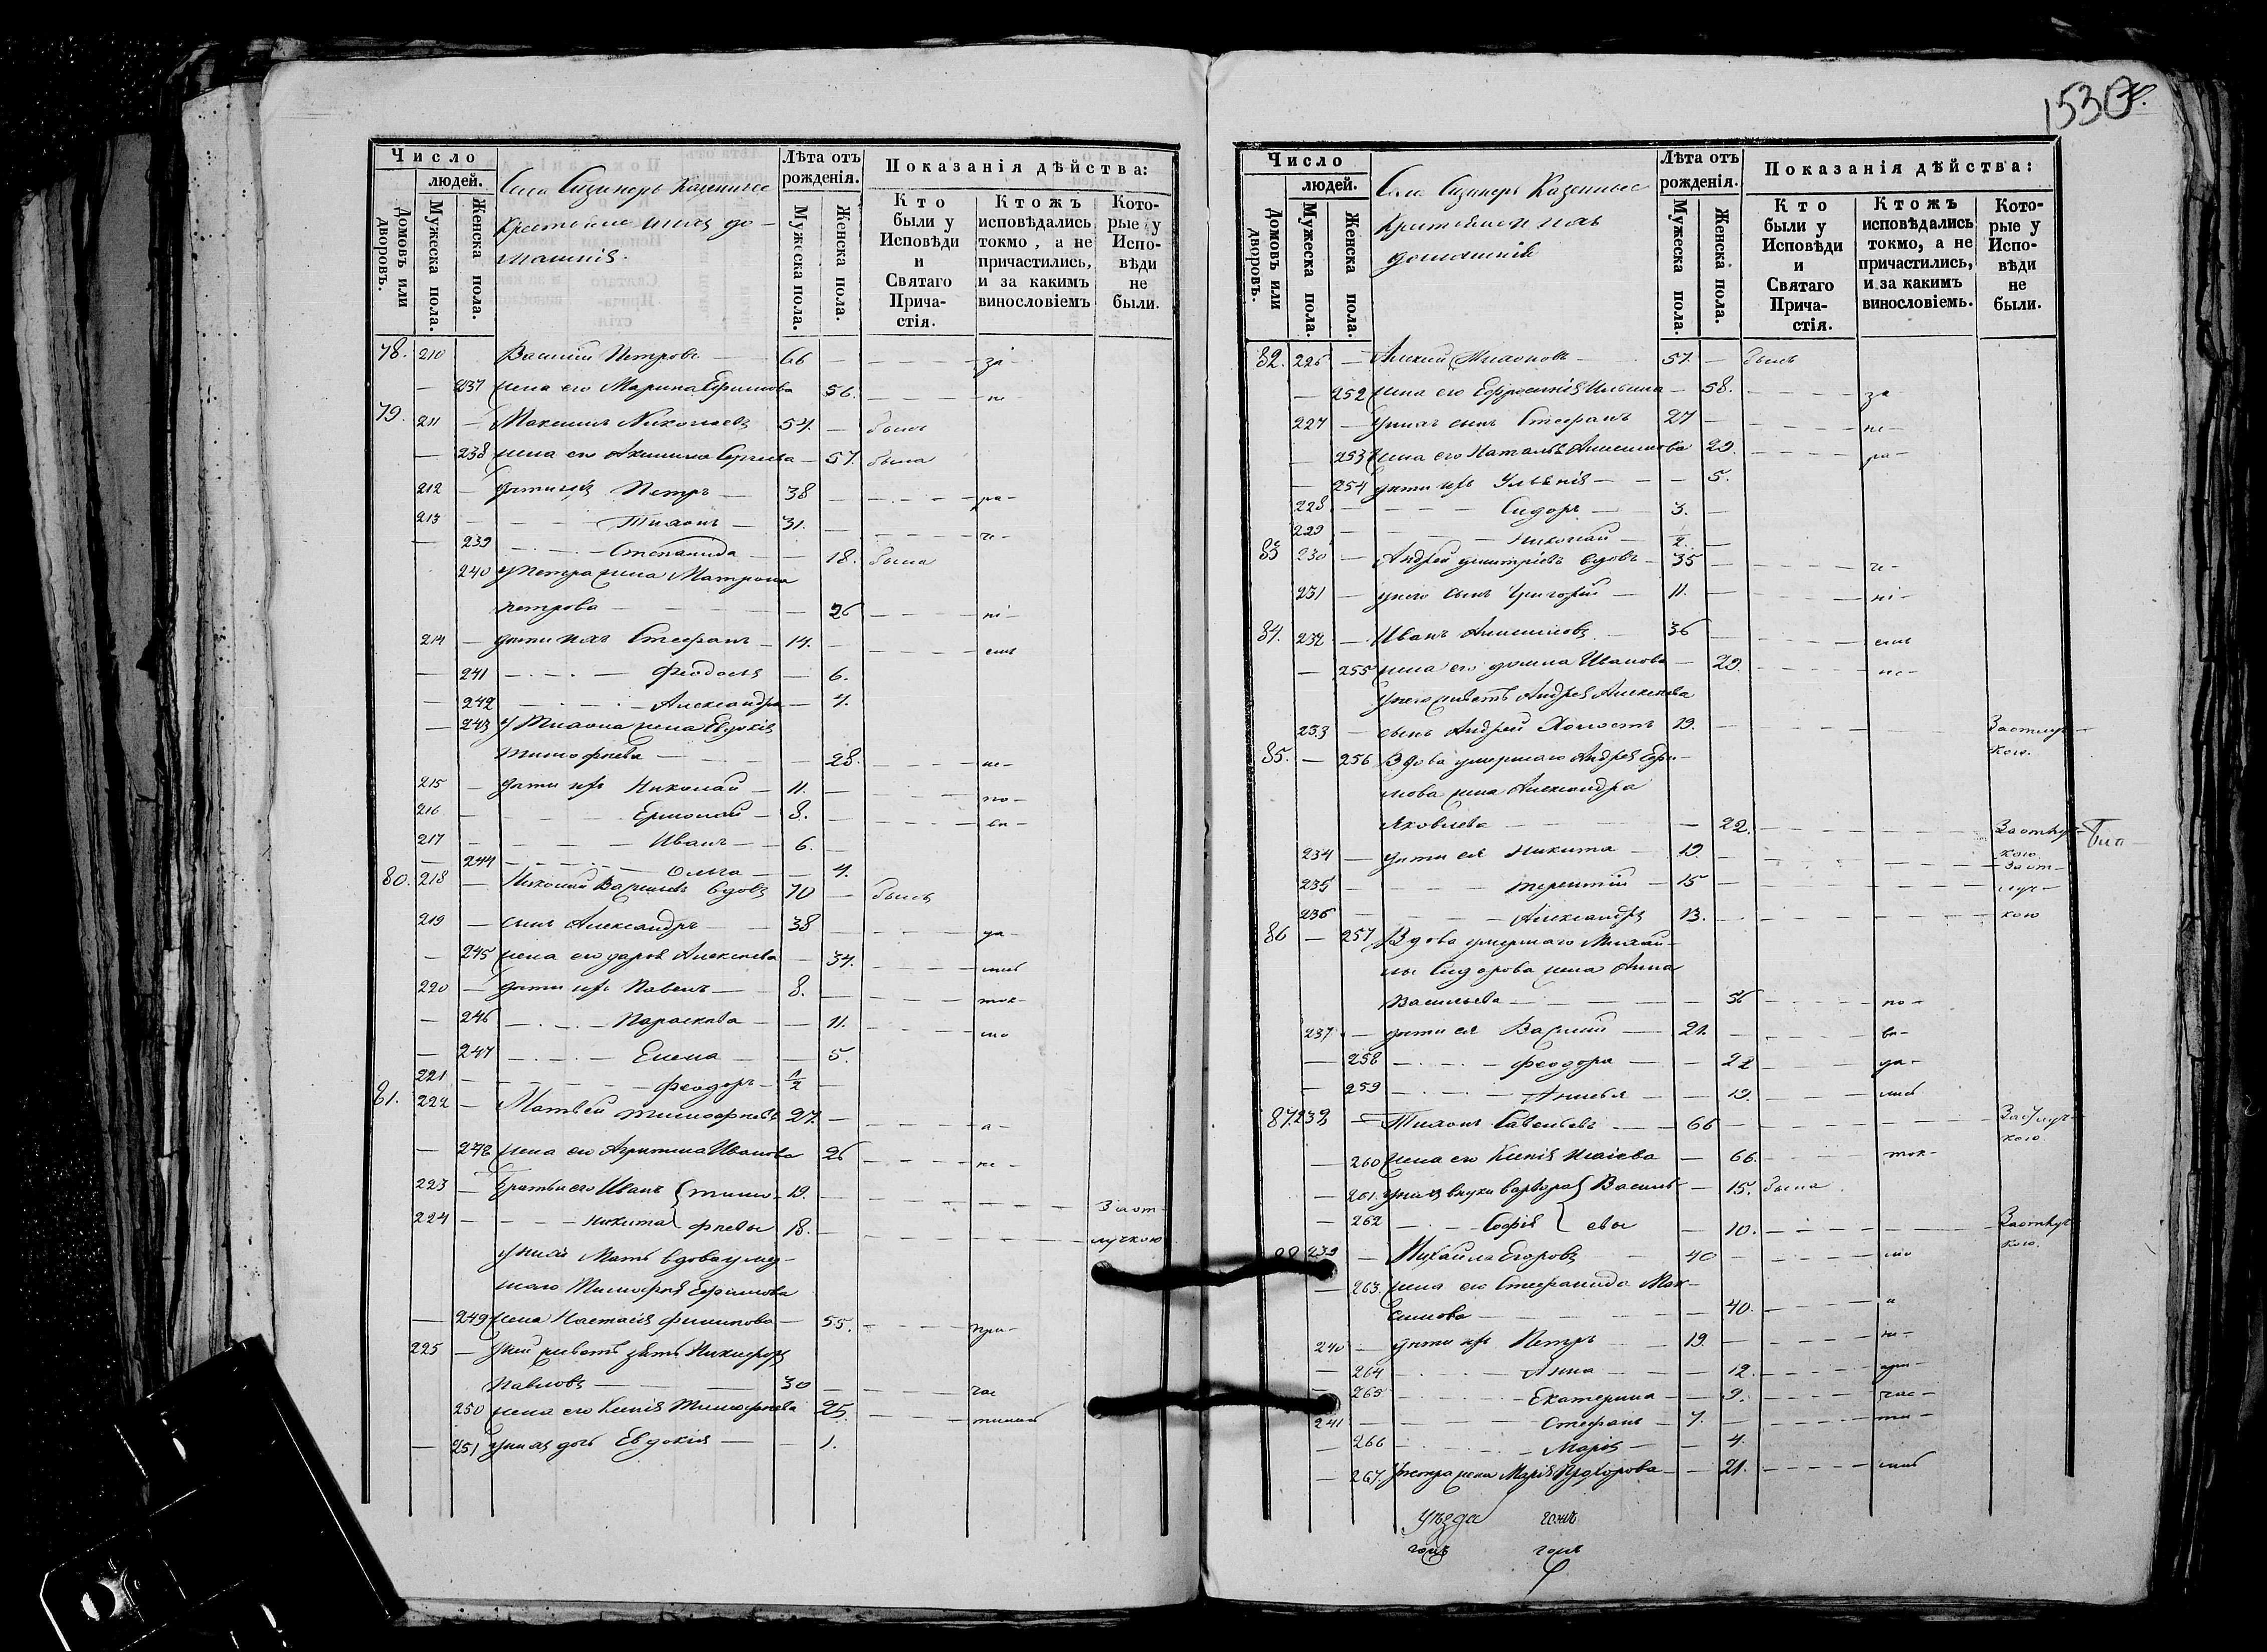 1530
Число
людей.
Домовъ или дворовъ.
Мужеска пола.
Женска пола.
Села Сизинеръ Казенные
крестьяне и ихъ до-
машнія.
Лѣта отъ
рожденія.
Мужеска пола.
Женска пола.
Показанія дѣйства:
Кто
были у
Исповѣди
и
Святаго
Прича-
стія.
Ктожъ
исповѣдались
токмо, а не
причастились,
и за какимъ
винословіемъ
Кото-
рые у
Испо-
вѣди
не
были.
78. 210 Василій Петровъ 66 за
237 жена его Марина Ефимова 56. не
79. 211 Максимъ Николаевъ 54. былъ
238 жена его Акилина Сергеева 57. была
212 дѣти ихъ Петръ 38 ра-
213 Тихонъ 31.
239 Степанида 18. была
240 у Петра жена Матрона
Петрова 26
214 дѣти ихъ Стефанъ 14.
241 Феодосья 6.
242 Александра 4.
243 у Тихона жена Евдокія
Тимофеева 28. не-
215 дѣти ихъ Николай 11. по-
216 Ермолай 8.
217 Иванъ 6.
244 Ольга 4.
80. 218 Николай Васильевъ вдовъ 70 былъ
219 сынъ Александръ 38
245 жена его Дарья Алексеева 34.
220 дѣти ихъ Павелъ 8. ток-
246 Параскева 11. мо
247 Елена 5.
221 Феодоръ 1/2
81. 222 Матвей Тимофеевъ 27. а-
248 жена его Агрипина Иванова 26 не-
223 братья его Иванъ Тимо- 19. За от-
224 Никита феевы 18. лучкою
у нихъ Мать вдова умер-
шаго Тимофея Ефимова
249 жена Настасія Филипова 55. при-
225 у ней живетъ зять Никифоръ
Павловъ 30 час
250 жена его Ксенія Тимофеева 25. тились
251 у нихъ дочь Евдокія 1.
Число
людей.
Домовъ или дворовъ.
Мужеска пола.
Женска пола.
Села Сизинеръ Казенные
Крестьяне и ихъ
домашнія
Лѣта отъ
рожденія.
Мужеска пола.
Женска пола.
Показанія дѣйства:
Кто
были у
Исповѣди
и
Святаго
Прича-
стія.
Ктожъ
исповѣдались
токмо, а не
причастились,
и за какимъ
винословіемъ.
Кото-
рые у
Испо-
вѣди
не
были.
82. 226 57. былъ
252 жена его Ефросинія Ильина 58. за
227 у нихъ сынъ Стефанъ 27 не-
253 жена его Наталья 29. ра-
254 дѣти ихъ Ульянія 5.
228 Сидоръ 3.
229 Николай 1/2
83 230 Андрей Дмитріевъ вдовъ 35
231 у него сынъ Григорій 11.
84. 232 Иванъ 36
255 жена его Домна Иванова 29. не-
у него живетъ Андрея Алексеева
233 сынъ Андрей Холостъ 19. За отлуч-
кою.
85. 256 Вдова умершаго Андрея Ефи-
мова жена Александра
Яковлева 22. За отлуч-
кою
234 дѣти ея Никита 19. За от-
235 Терентій 15 луч-
236 Александръ 13. кою
86 257 Вдова умершаго Михай-
лы Сидорова жена Анна
Васильева 56 по-
237 дѣти ея Василій 21
258 Феодора 22
259 19.
87. 238 Тихонъ Савельевъ 66 За отлуч-
кою.
260 жена его Ксенія 66. ток-
261. у нихъ внуки Варвара Василь- 15. была
262 Софія евы 10. За отлуч-
кою.
88 239 Михайла Егоровъ 40 мо
263. жена его Стефанида Мак-
симова 40. а
240 дѣти ихъ Петръ 19. не-
264 Анна 12. при-
265 Екатерина 9. час-
241 Стефанъ 7. ти-
266 Марія 4.
267. у Петра жена Марія Прохорова 21.
Уѣзда